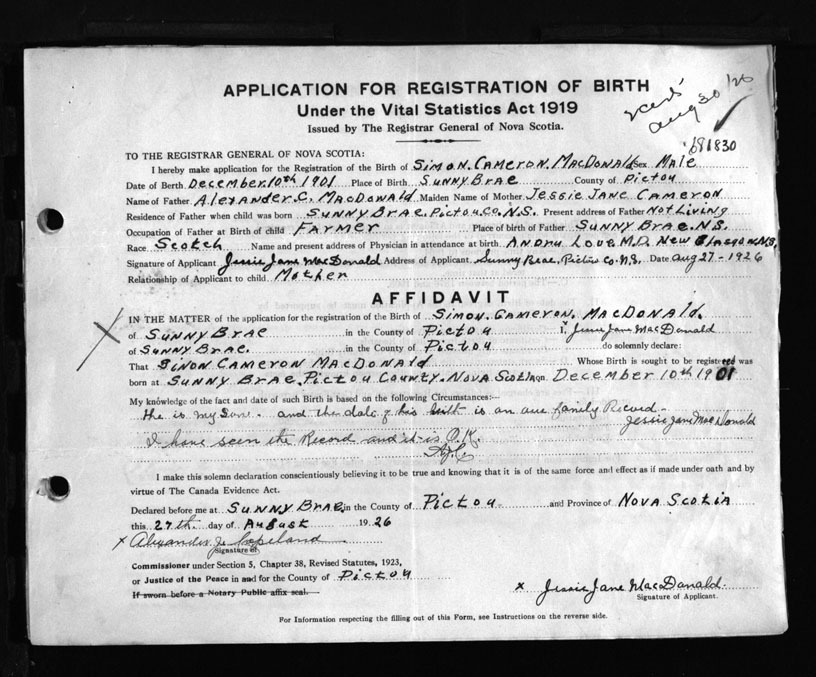 APPLICATION FOR REGISTRATION OF BIRTH
Under the Vital Statistics Act 1919
Issued by The Registrar General of Nova Scotia.
Aug 30/26
681830
TO THE REGISTRAR GENERAL OF NOVA SCOTIA:
I hereby make application for the Registration of the Birth of Simon. Cameron. MacDonald Sex Male
Date of Birth December. 10th 1901 Place of Birth Sunny Brae County of Pictou
Name of Father Alexander. C. MacDonald Maiden Name of Mother Jessie Jane Cameron
Residence of Father when child was born Sunny Brae. Pictou. Co. N.S. Present address of Father Not Living
Occupation of Father at Birth of child Farmer Place of birth of Father Sunny Brae. N.S.
Race Scotch Name and present address of Physician in attendance at birth Andru Love. M.D. New Glasgow N.S.
Signature of Applicant Jessie Jane MacDonald Address of Applicant Sunny Brae, Pictou Co. N.S. Date Aug 27 - 1926
Relationship of Applicant to child Mother
AFFIDAVIT
IN THE MATTER of the application for the registration of the Birth of Simon. Cameron. MacDonald.
of Sunny Brae in the County of Pictou I, x Jessie Jane MacDonald
of Sunny Brae. in the County of Pictou do solemnly declare:
That Simon Cameron MacDonald Whose Birth is sought to be registered was
born at Sunny Brae. Pictou County. Nova Scotia on December 10th 1901
My knowledge of the fact and date of such Birth is based on the following Circumstances:—
He is my Sone. and the date of his birth is an our family Record.
Jessie Jane MacDonald
I have seen the Record and it is O.K.
A.J.C.
I make this solemn declaration conscientiously believing it to be true and knowing that it is of the same force and effect as if made under oath and by
virtue of The Canada Evidence Act.
Declared before me at Sunny Brae. in the County of Pictou and Province of Nova Scotia
this 27th day of August 1926
x Alexander J. Copeland
Signature of
Commissioner under Section 5, Chapter 38, Revised Statutes, 1923,
or Justice of the Peace in and for the County of Pictou
If sworn before a Notary Public affix seal.
x Jessie Jane MacDonald.
Signature of Applicant.
For Information respecting the filling out of this Form, see Instructions on the reverse side.